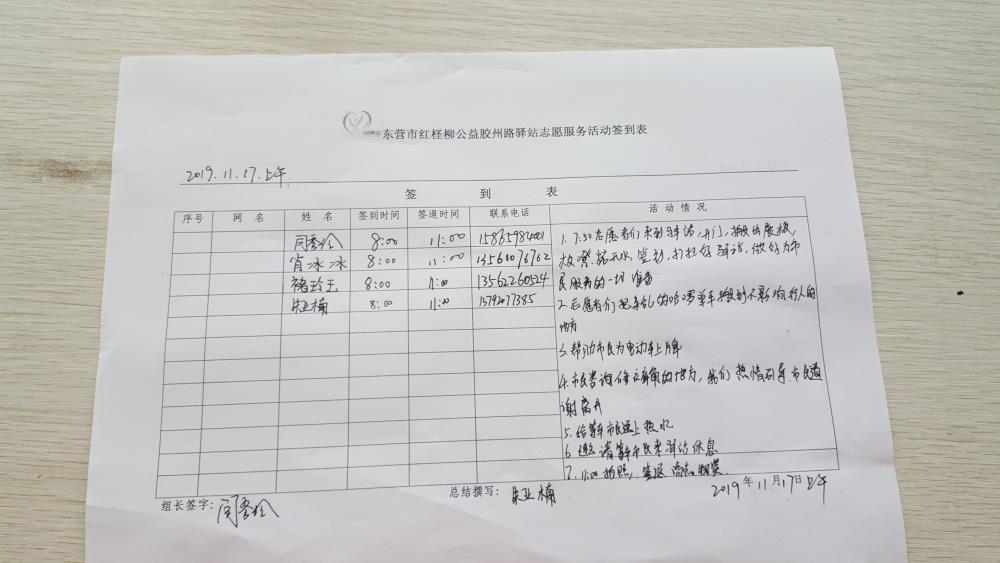 东营市红柽柳公益胶州路驿站志愿服务活动签到表
2019.11.17.上午
签 到 表
序号 网 名 姓 名 签到时间 签退时间 联系电话 活 动 情 况
闫秀玲 8:00 11:00 15865984001
肖冰冰 8:00 11:00 13560076762
褚玲玉 8:00 11:00 13562260524
朱业楠 8:00 11:00 13792077385
1. 7:50志愿者们来到驿站,开门,搬出展板,
放凳.烧开水,签到,打扫好驿站,做好为市
民服务的一切准备
2.志愿者们把乱的哈啰单车搬到不影响行人的
地方
3.帮助市民为电动车上牌
4.市民咨询修的地方,我们热情引导.市民道
谢离开
5.给等车市民送上热水
6.邀请等车市民来驿站休息
7.11:00拍照.签退.
组长签字:闫秀玲
总结撰写:朱业楠
2019年11月17日上午